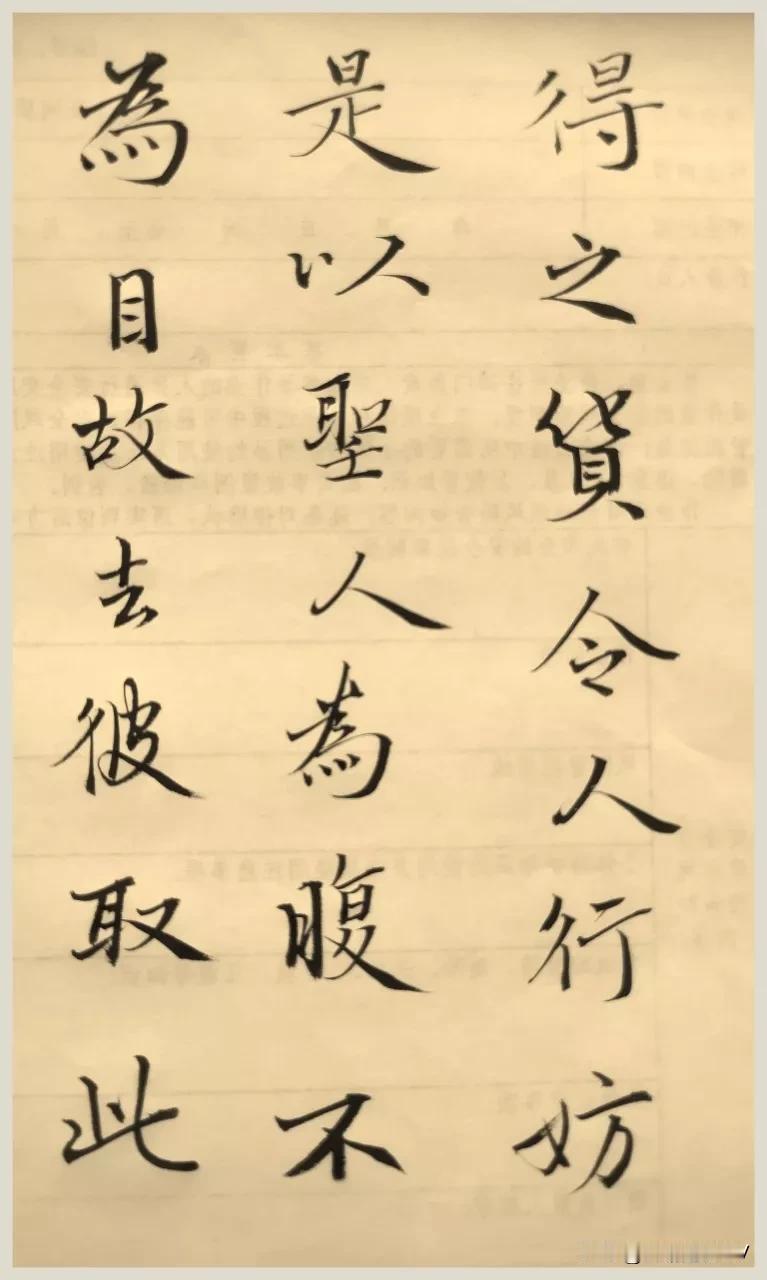 得之貨令人行妨
是以聖人為腹不
為目故去彼取此